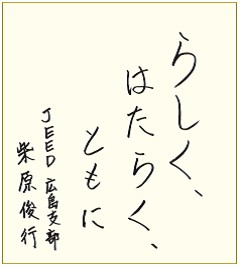 らしく、
はたらく、
ともに
JEED 広島支部
柴原俊行